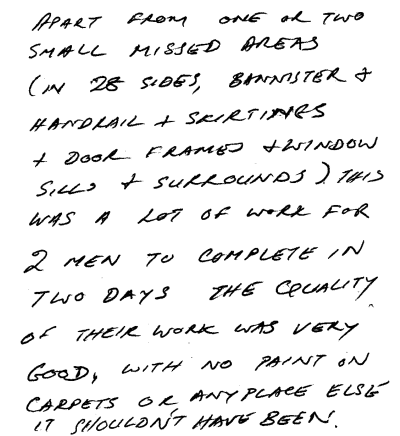 APART FROM ONE OR TWO
SMALL MISSED AREAS
(IN 28 SIDES, BANNISTER &
HANDRAIL + SKIRTINGS
+ DOOR FRAMES + WINDOW
SILLS + SURROUNDS) THIS
WAS A LOT OF WORK FOR
2 MEN TO COMPLETE IN
TWO DAYS THE QUALITY
OF THEIR WORK WAS VERY
GOOD, WITH NO PAINT ON
CARPETS OR ANYPLACE ELSE
IT SHOULDN'T HAVE BEEN.